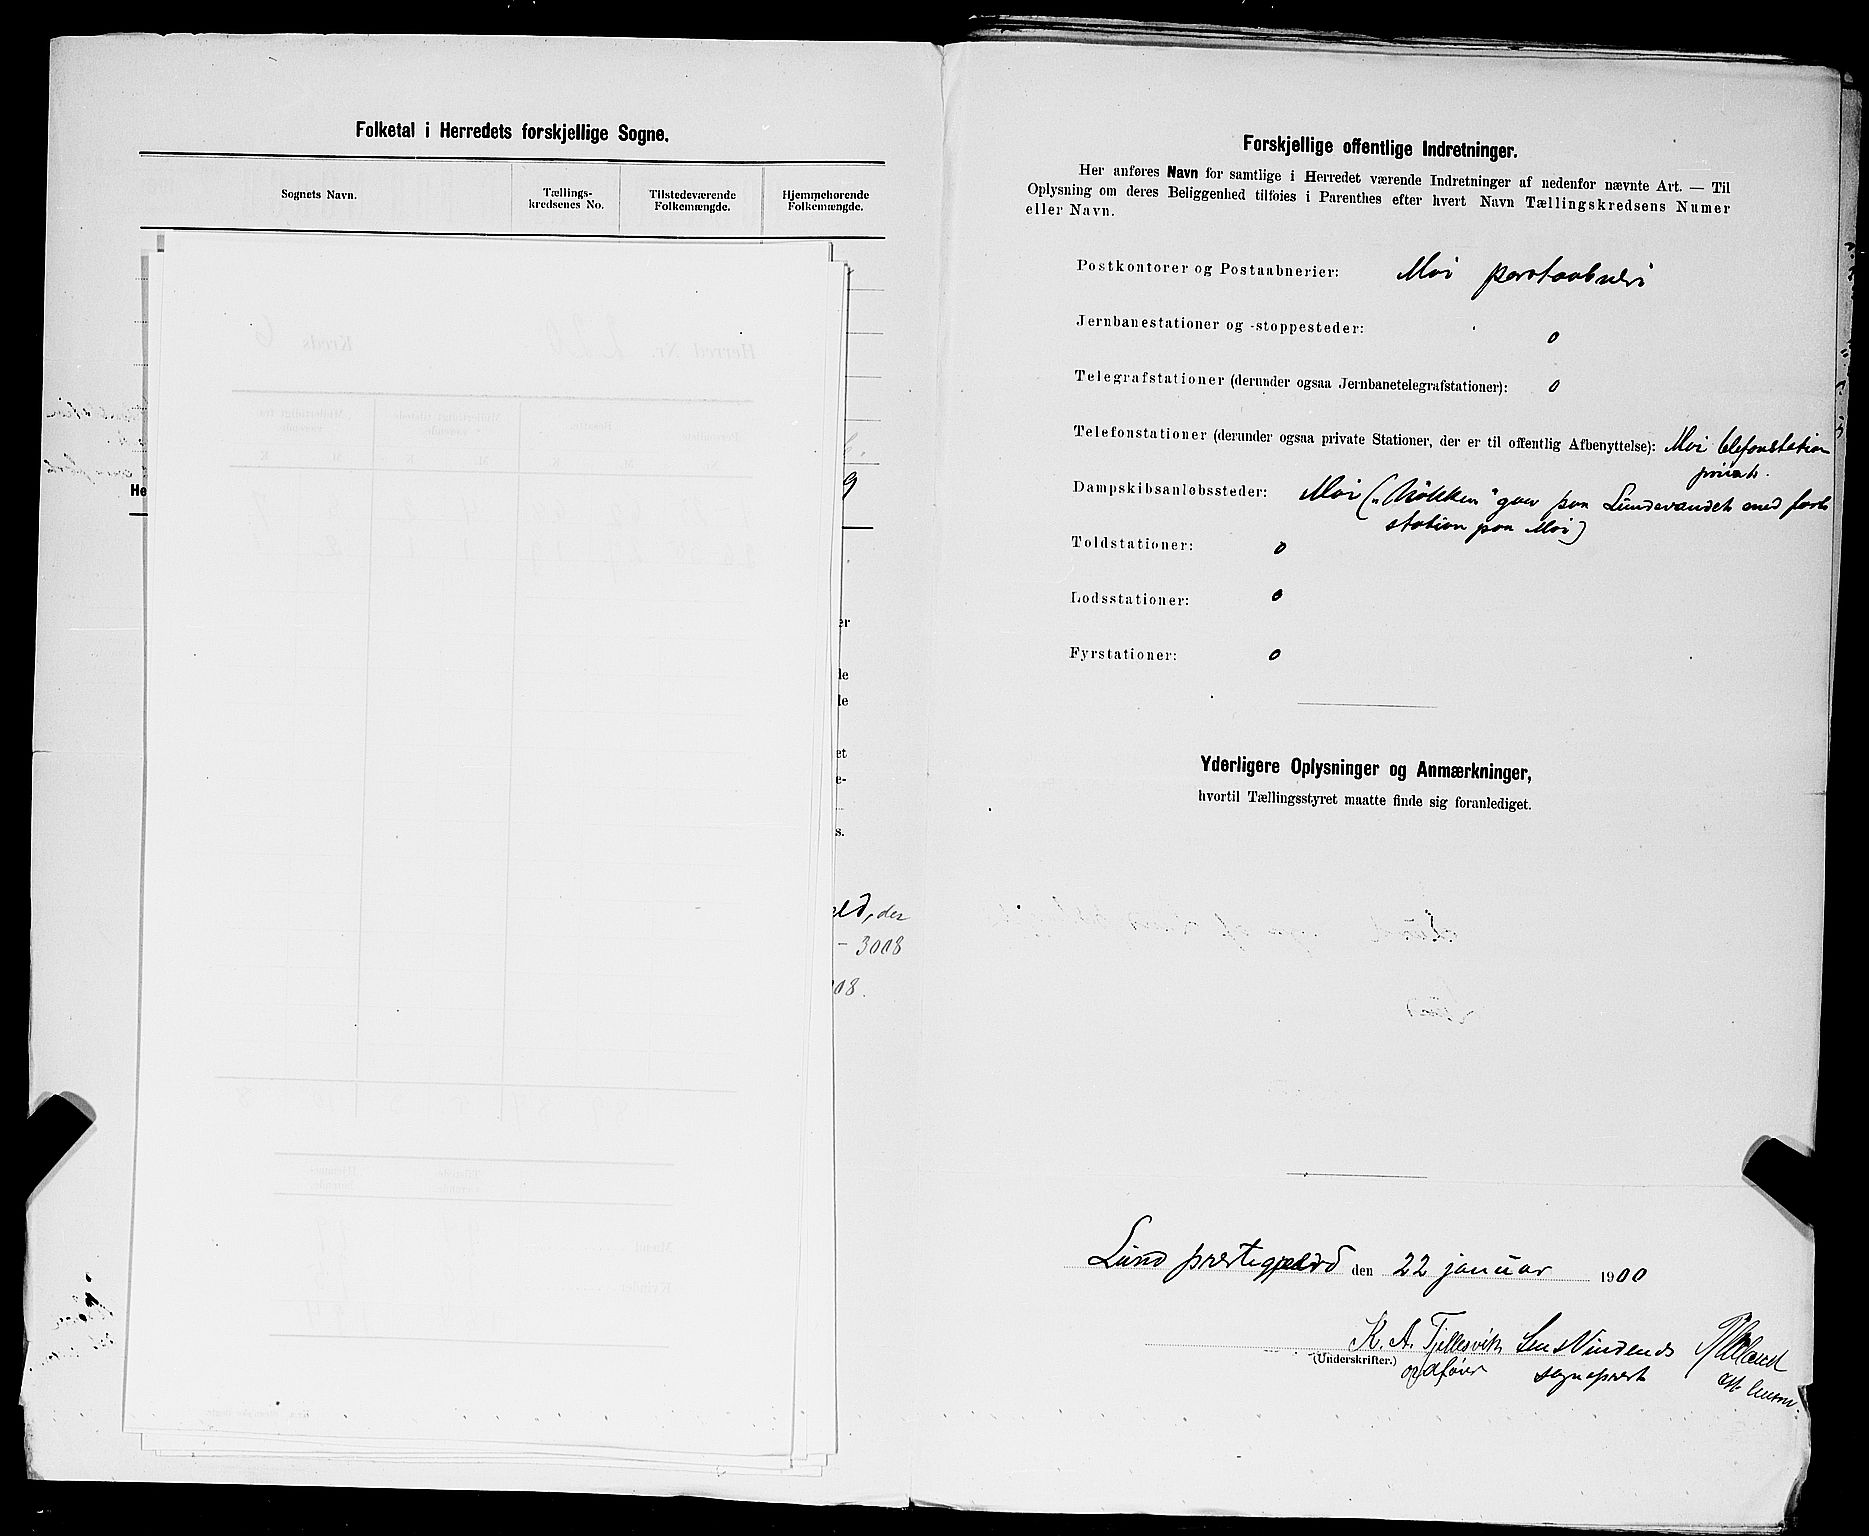 Folketal i Herredets forskjellige Sogne.
Sognets Navn.
Tællings-
kredsenes No.
Tilstedeværende
Folkemængde.
Hjemmehørende
Folkemængde.
Herred Nr.
Kreds 6
He
9
er
de
de
et
e-
s.
eld, der
- 3008
008.
Forskjellige offentlige Indretninger.
Her anføres Navn for samtlige i Herredet værende Indretninger af nedenfor nævnte Art. — Til
Oplysning om deres Beliggenhed tilføies i Parenthes efter hvert Navn Tællingskredsens Numer
eller Navn.
Postkontorer og Postaabnerier: Moi postaabneri
Jernbanestationer og -stoppesteder: 0
Telegrafstationer (derunder ogsaa Jernbanetelegrafstationer): 0
Telefonstationer (derunder ogsaa private Stationer, der er til offentlig Afbenyttelse): Moi telefonstation
privat.
Dampskibsanløbssteder: Moi („Nökken" gaar paa Lundevandet med fast
station paa Moi)
Toldstationer: 0
Lodsstationer: 0
Fyrstationer: 0
Yderligere Oplysninger og Anmærkninger,
hvortil Tællingsstyret maatte finde sig foranlediget.
Lund præstegjeld den 22 januar 1900
K. A. Tjellesvik
(Underskrifter.)
ordfører sogneprest